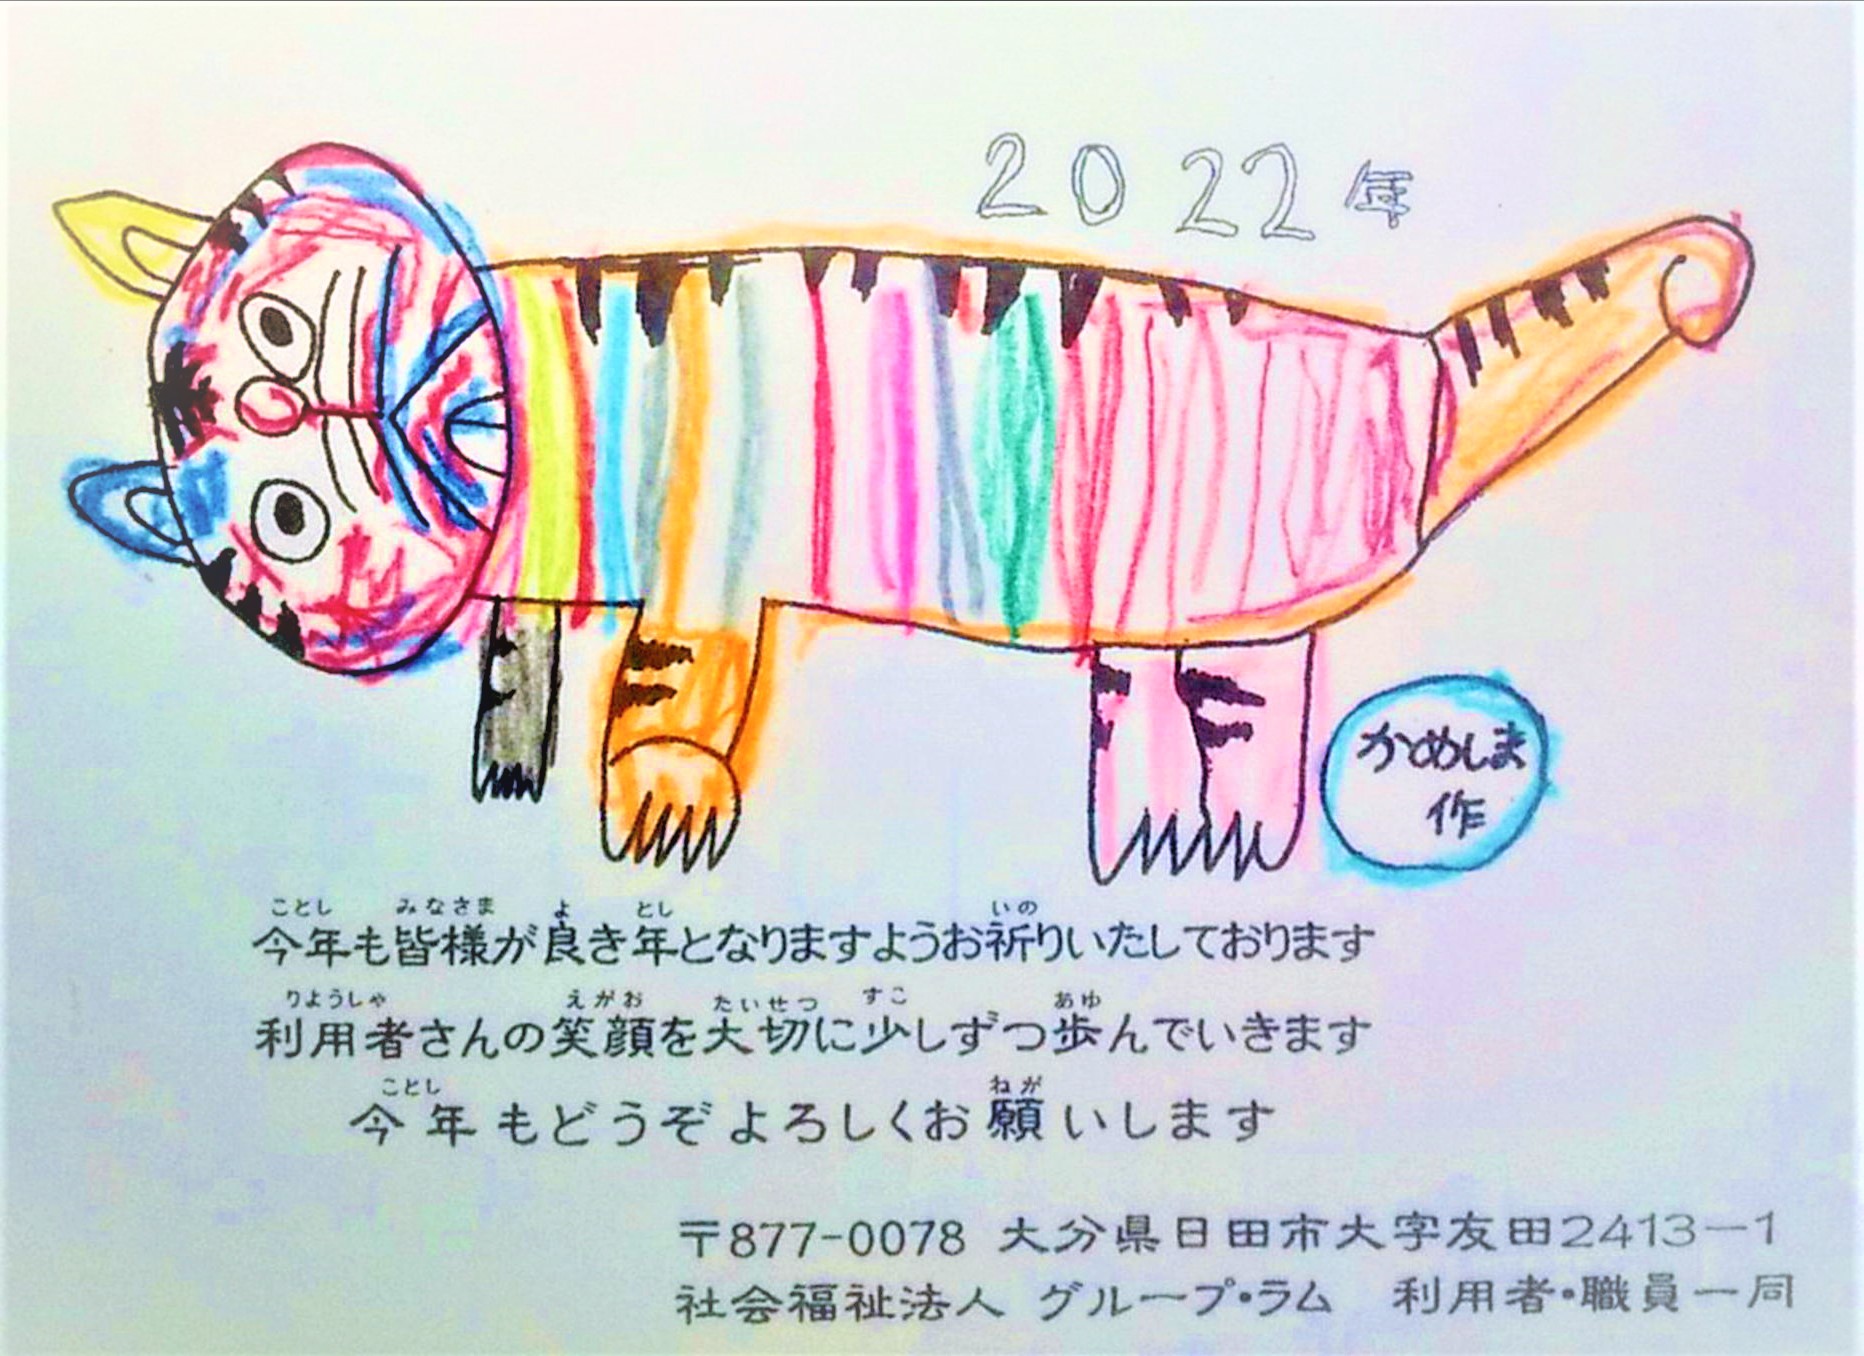 2022年
かめしま
作
ことし みなさま よ とし いの
今年も皆様が良き年となりますようお祈りいたしております
りようしゃ えがお たいせつ すこ あゆ
利用者さんの笑顔を大切に少しずつ歩んでいきます
ことし ねが
今年もどうぞよろしくお願いします
〒877-0078 大分県日田市大字友田2413-1
社会福祉法人 グループ・ラム 利用者・職員一同